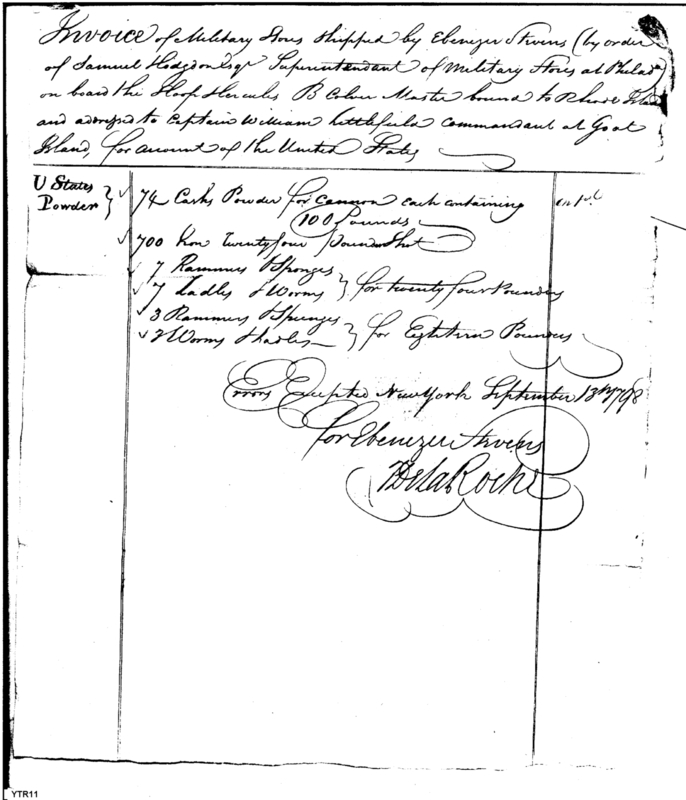 Invoice of Military Stores Shipped by Ebenezer Stevens (by order
of Samuel Hodgdon Esqr Superintendant of Military Stores at Philada
on board the Sloop Hercules B Master bound to Rhode Island
and adressed to Captain William Littlefield Commandant at Goat
Island, for account of the United States
U States
Powder
74 Casks Powder for Cannon each containing
100 Pounds
700 Iron Twenty four pound Shot
7 Rammers & Sponges
7 Ladles & Worms } for twenty four Pounders
3 Rammers & Spunges
3 Worms & Ladles } for Eighteen Pounders
Errors Excepted New York September 13th 1798
for Ebenezer Stevens
De la Roche
YTR11